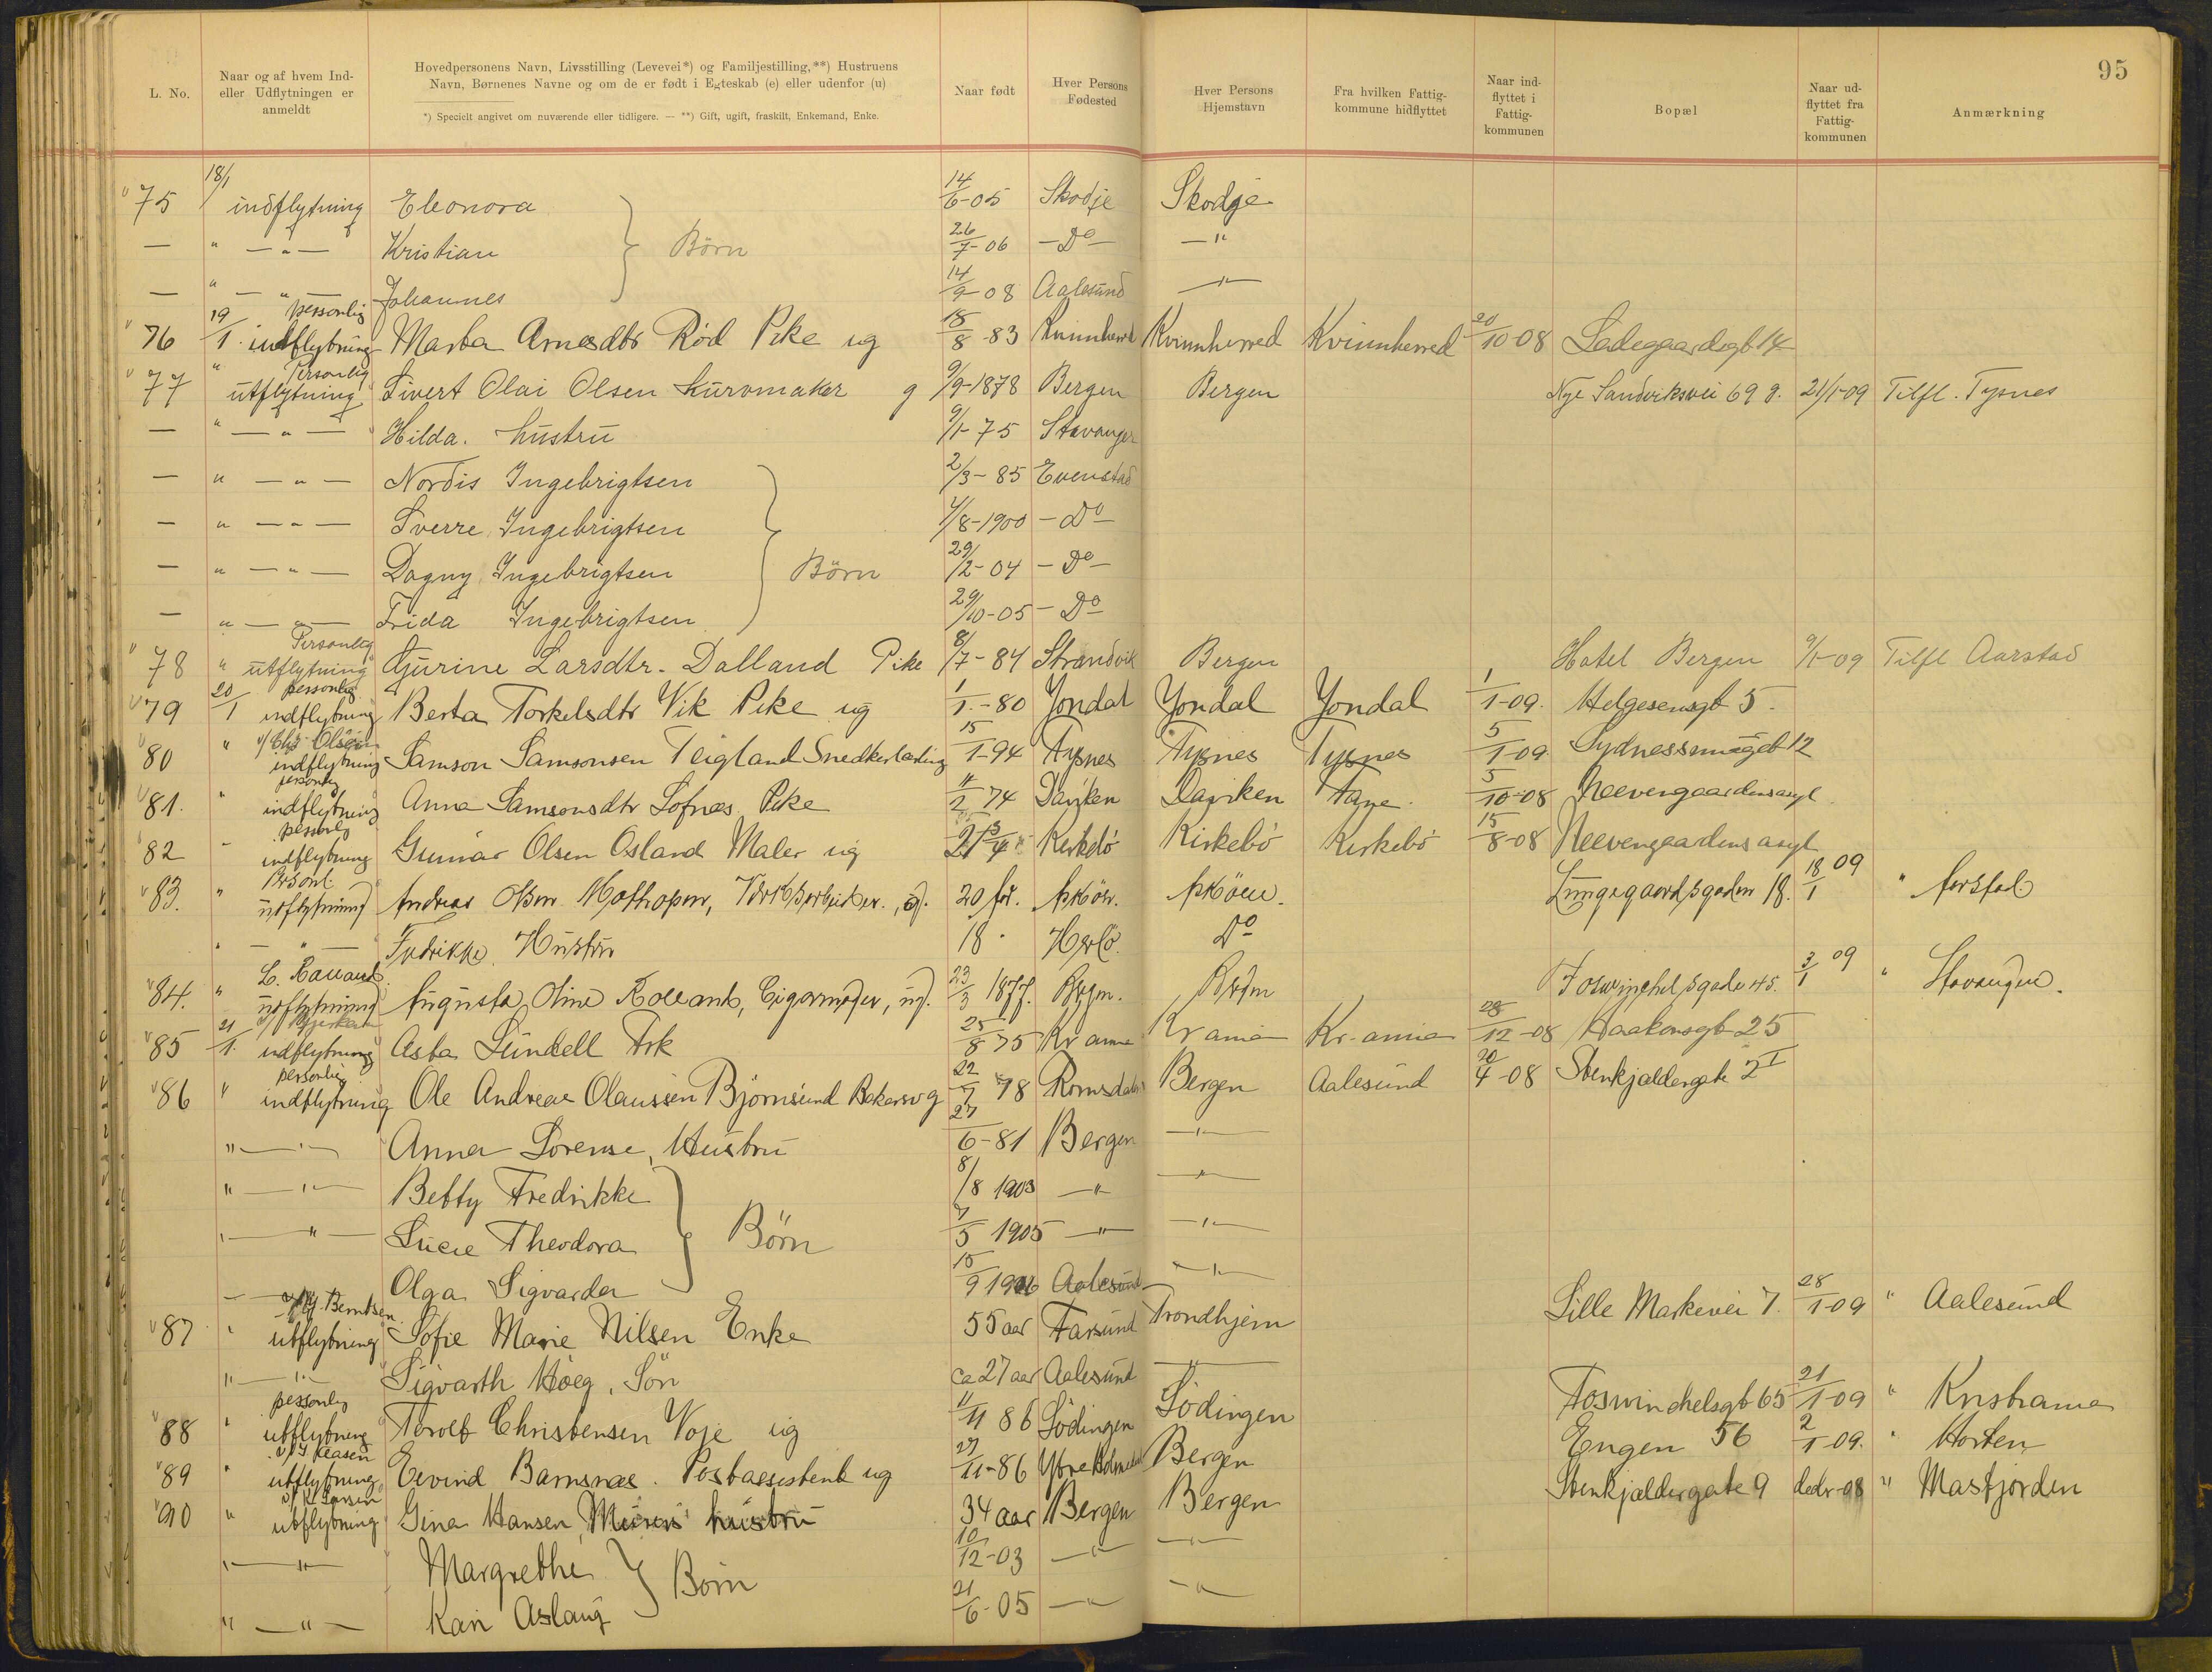 95
L. No.
Naar og af hvem Ind- eller Udflytningen er anmeldt
Hovedpersonens Navn, Livsstilling (Levevei*) og Familjestilling,**) Hustruens Navn, Børnenes Navne og om de er født i Egteskab (e) eller udenfor (u)
*) Specielt angivet om nuværende eller tidligere. — **) Gift, ugift, fraskilt, Enkemand, Enke.
Naar født
Hver Persons Fødested
Hver Persons Hjemstavn
Fra hvilken Fattig-kommune hidflyttet
Naar ind-flyttet i Fattig-kommunen
Bopæl
Naar ud-flyttet fra Fattig-kommunen
Anmærkning
75 18/1 indflytning Eleonora 14/6-05 Skodje Skodje
— " — " — Kristian } Börn 26/7-06 — Do — — "
— " — " — Johannes 14/9-08 Aalesund — " —
76 19/1. personlig indflytning Marta Arnesdtr Röd Pike ug 18/8-83 Kvinnherred Kvinnherred Kvinnherred 20/10-08 Ladegaardsgt 14
77 " Personlig utflytning Sivert Olai Olsen kurvmaker g 9/9-1878 Bergen Bergen Nye Sandviksvei 69 21/1-09 Tilfl. Tysnes
— " — " — Hilda. hustru 9/1-75 Stavanger
— " — " — Nordis Ingebrigtsen 2/3-85 Evenstad
— " — " — Sverre Ingebrigtsen /8-1900 — Do —
— " — " — Dagny Ingebrigtsen } Börn 29/2-04 — Do —
— " — " — Frida Ingebrigtsen 29/10-05 — Do
78 " Personlig utflytning Gurine Larsdtr. Dalland Pike 8/7-84 Strandvik Bergen Hotel Bergen 9/1-09 Tilfl Aarstad
79 20/1 personlig indflytning Berta Torkelsdtr Vik Pike ug 1/1-80 Jondal Jondal Jondal 1/1-09. Helgesensgt 5.
80 " v/ Chr Olsen indflytning Samson Samsonsen Teigland Snedkerlærling 15/1-94 Tysnes Tysnes Tysnes 5/1-09 Sydnessmuget 12
81. " personlig indflytning Anna Samsonsdtr Lofnæs Pike 74 Daviken Daviken 5/10-08 Neevengaardens asyl
82 personlig indflytning Gunnar Olsen Osland Maler ug Kirkebö Kirkebö Kirkebö 15/8-08 Neevengaardens asyl
83. " Personl. utflytning Andreas Olsen 20 for. Asköen. Asköen. Lungegaardsgaden 18. 18/1 09 " Aarstad
" — " — Fredrikke Hustru 18 " Herlö. Do
84. " utflytning Augusta Oline Cigarmager, ug. 23/3 1877. Bergen. Bergen Foswinckelsgade 45. 3/1 09 " Stavanger.
85 21/1. indflytning Asta Lundell Frk 25/8 75 Kr ania Kr ania Kr. ania 28/12-08 Haakonsgt 25
86 " personlig indflytning Ole Andreas Olaussen Björnsund Bakersv g 22/7 78 Romsdalen Bergen Aalesund 20/4-08 Stenkjeldergate 2 I
" — " — Anna Lorense, Hustru 27/6-81 Bergen — " —
" — " — Betty Fredrikke 8/8 1903 — " — — " —
" — " — Lucie Theodora } Börn 7/5 1905 — " — — " —
— Olga Sigvarda 15/9 1906 Aalesund — " —
87 " Berntsen utflytning Sofie Marie Nilsen Enke 55 aar Farsund Trondhjem Lille Markevei 7. 28/1-09 " Aalesund
" — " — Sigvarth Höeg, Sön ca 27 aar Aalesund — " —
88 " personlig utflytning Torolf Christensen Voje ug 11/11 86 Lödingen Lödingen Foswinckelsgt 65 21/1-09 " Kristiania
89 " utflytning Eivind Barnsnæs. Postassistent ug 27/11-86 Ytre Holmedal Bergen Engen 56 2/1-09. " Horten
90 " v/ K. Larsen utflytning Gina Hansen, Murers hustru 34 aar Bergen Bergen Stenkjeldergate 9 decbr-08 " Masfjorden
" — " — Margrethe } Börn 10/12-03 — " — — " —
" — " — Kari Aslaug 21/6-05 — " — — " —